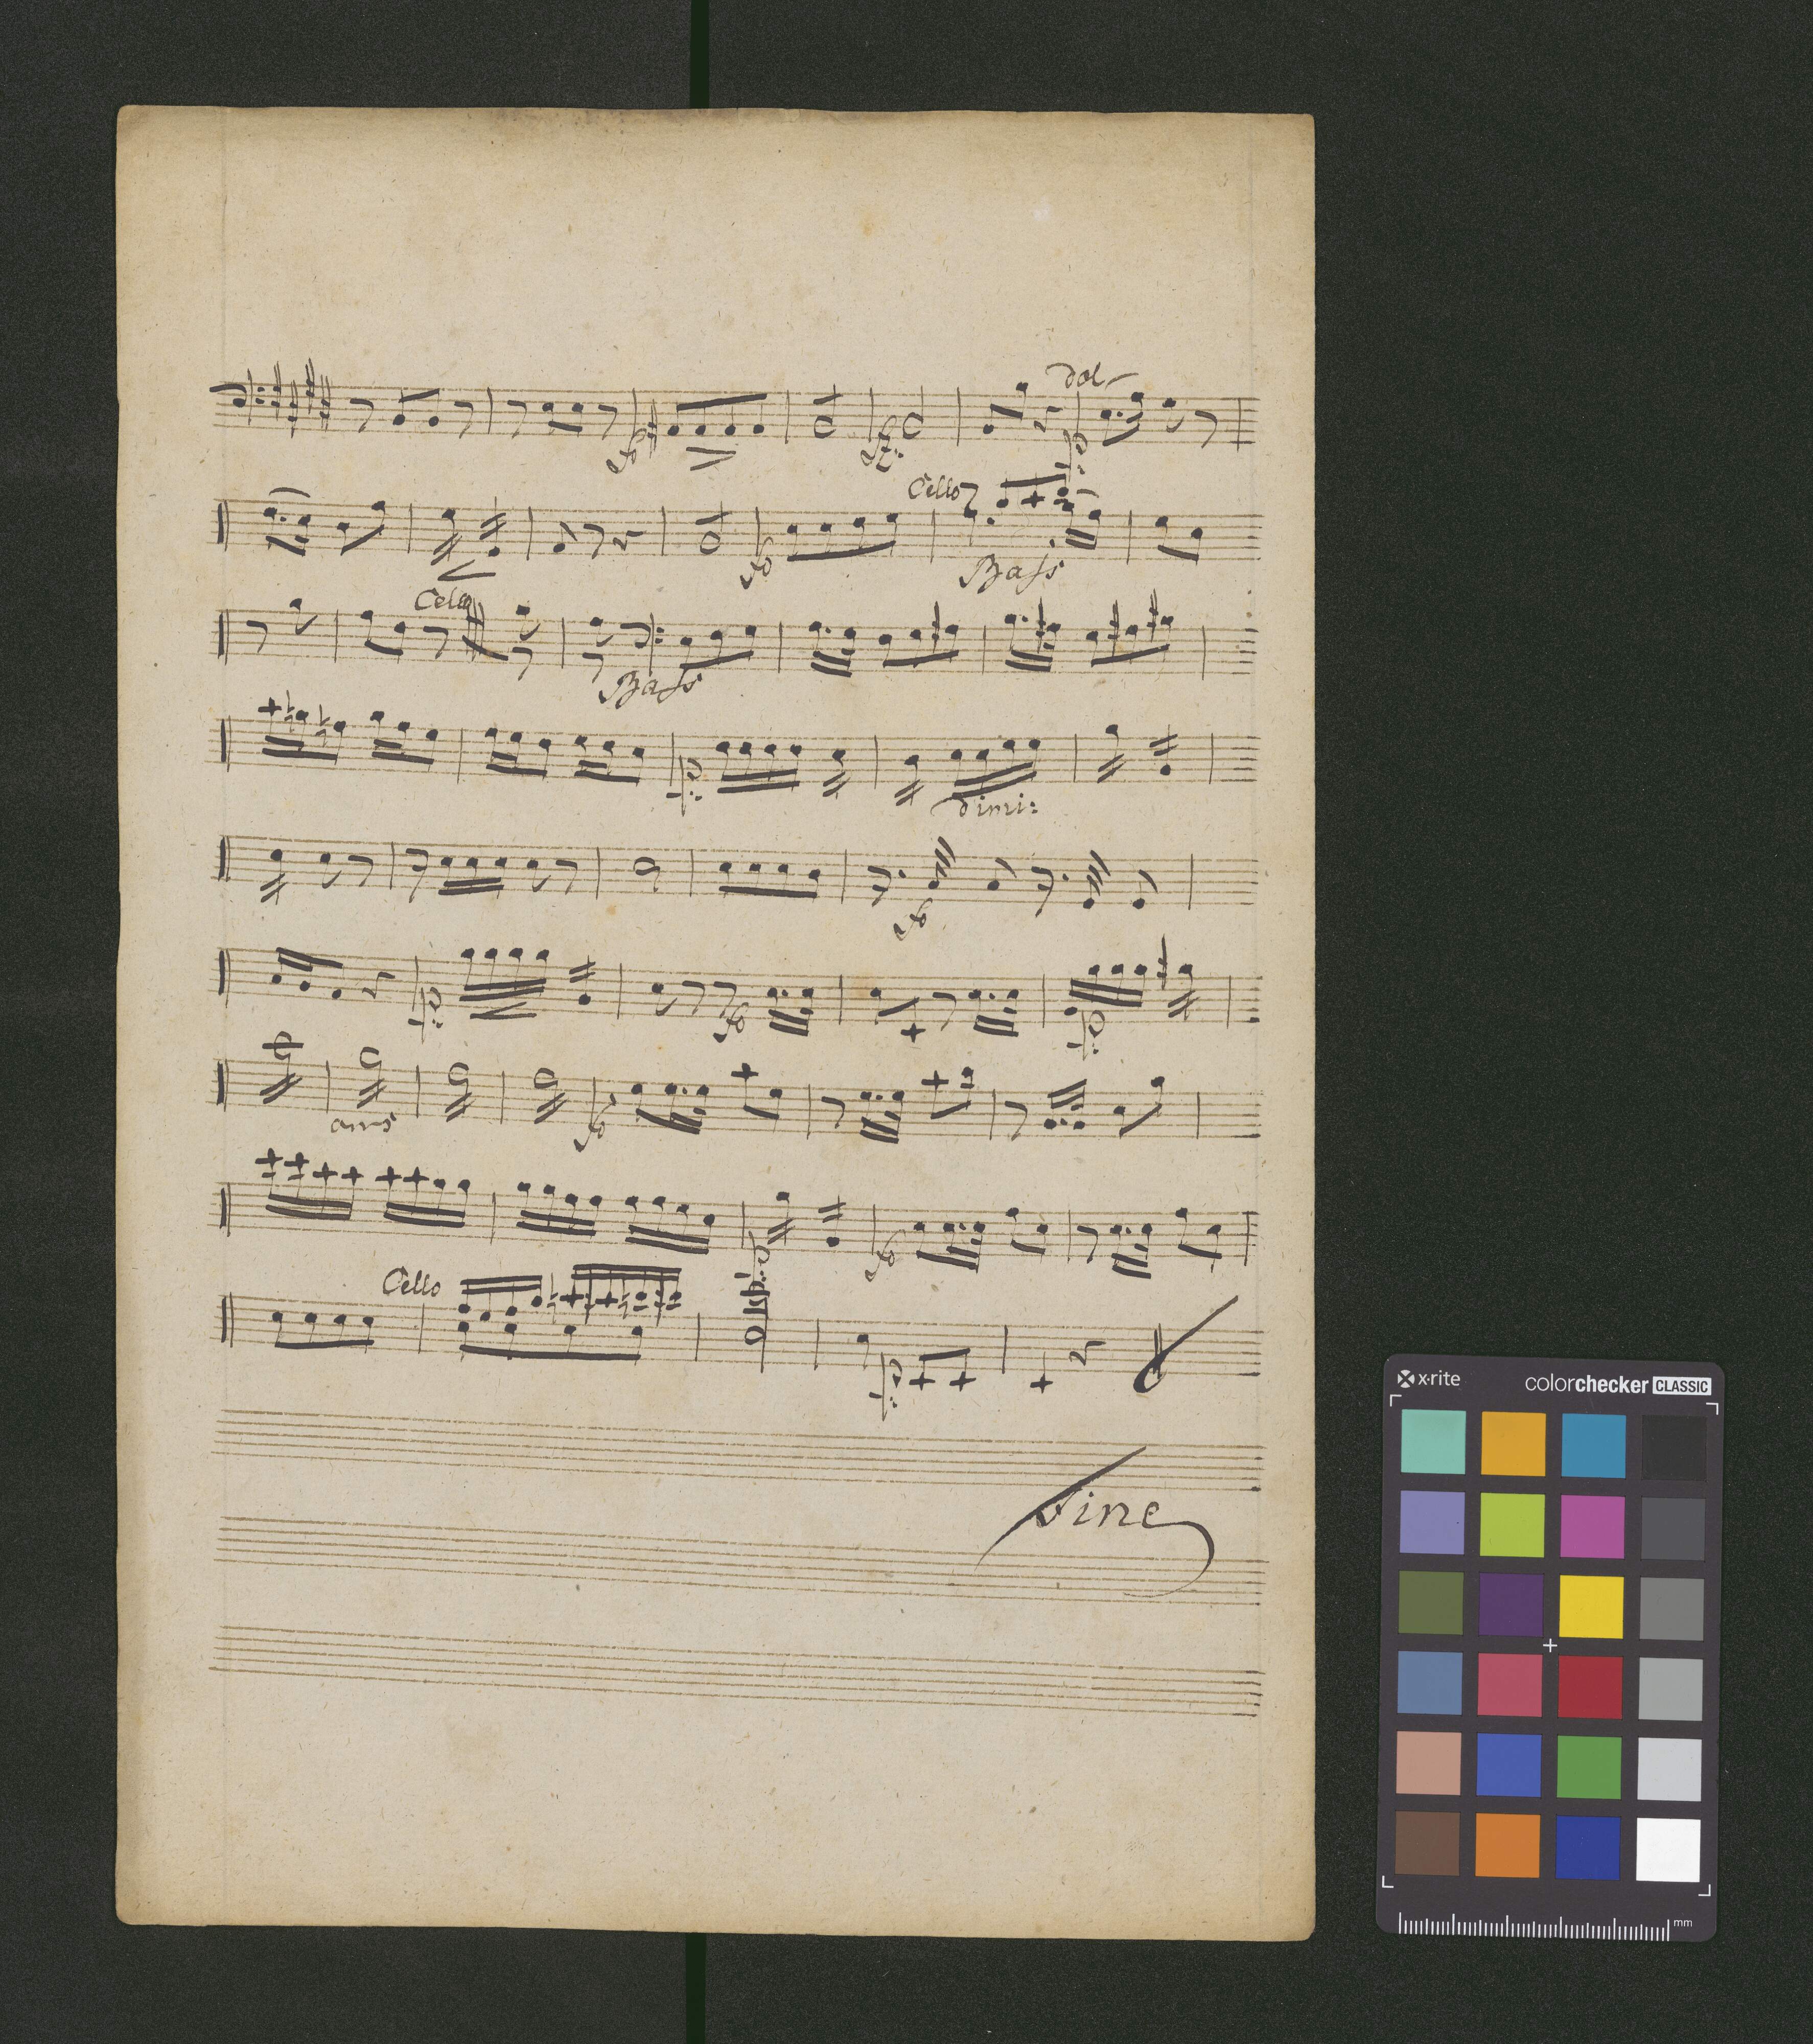 dol
fo
fz:
p:
Cello
fo
Bass
Cello
Bass
p:
dimi:
fo
p:
fo
p:
fo
fo
p:
Cello
p:
Fine
x·rite
colorchecker CLASSIC
mm